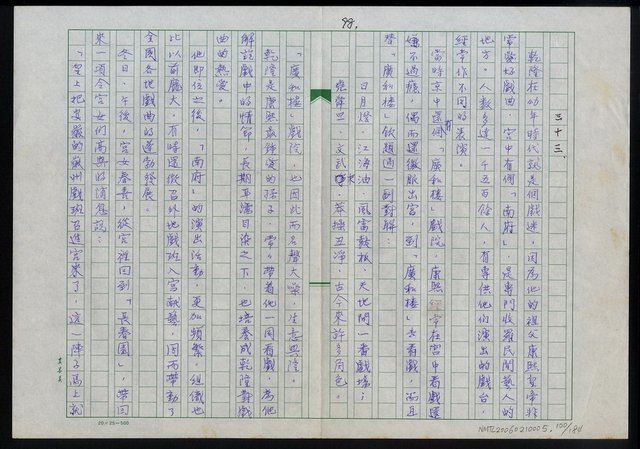 99.
三十三、
乾隆在幼年時代就是個戲迷，因為他的祖父康熙皇帝非
常愛好戲曲，宮中有個「南府」，是專門收羅民間藝人的
地方。人數多達一千五百餘人，有專供他們演出的戲台，
經常作不同的表演。
當時京中還有個「廣和樓」戲院，康熙經常在宮中看戲還
嫌不過癮，偶而還微服出宮，到「廣和樓」去看戲，而且
替「廣和樓」欽題過一副對聯：
日月燈，江海油，風雷鼓板，天地間一番戲場；
堯舜旦，文武末，莽操丑淨，古今來許多角色。
「廣和樓」戲院，也因此而名聲大噪，生意興隆。
乾隆是康熙最鍾愛的孫子，常帶着他一同看戲，為他
解說戲中的情節，長期耳濡目染之下，也培養成乾隆對戲
曲的熱愛。
他即位之後，「南府」的演出活動，更加頻繁，組織也
比以前龐大，有時還徵召外地戲班入宮獻藝，因而帶動了
全國各地戲曲的蓬勃發展。
冬日，午後，宮女春喜，從宮裡回到「長春園」，帶回
來一項令宮女們高興的消息說：
「皇上把安徽的徽州戲班召進宮來了，這一陣子馬上就
20×25=500
NMTL20060210005, 100/184